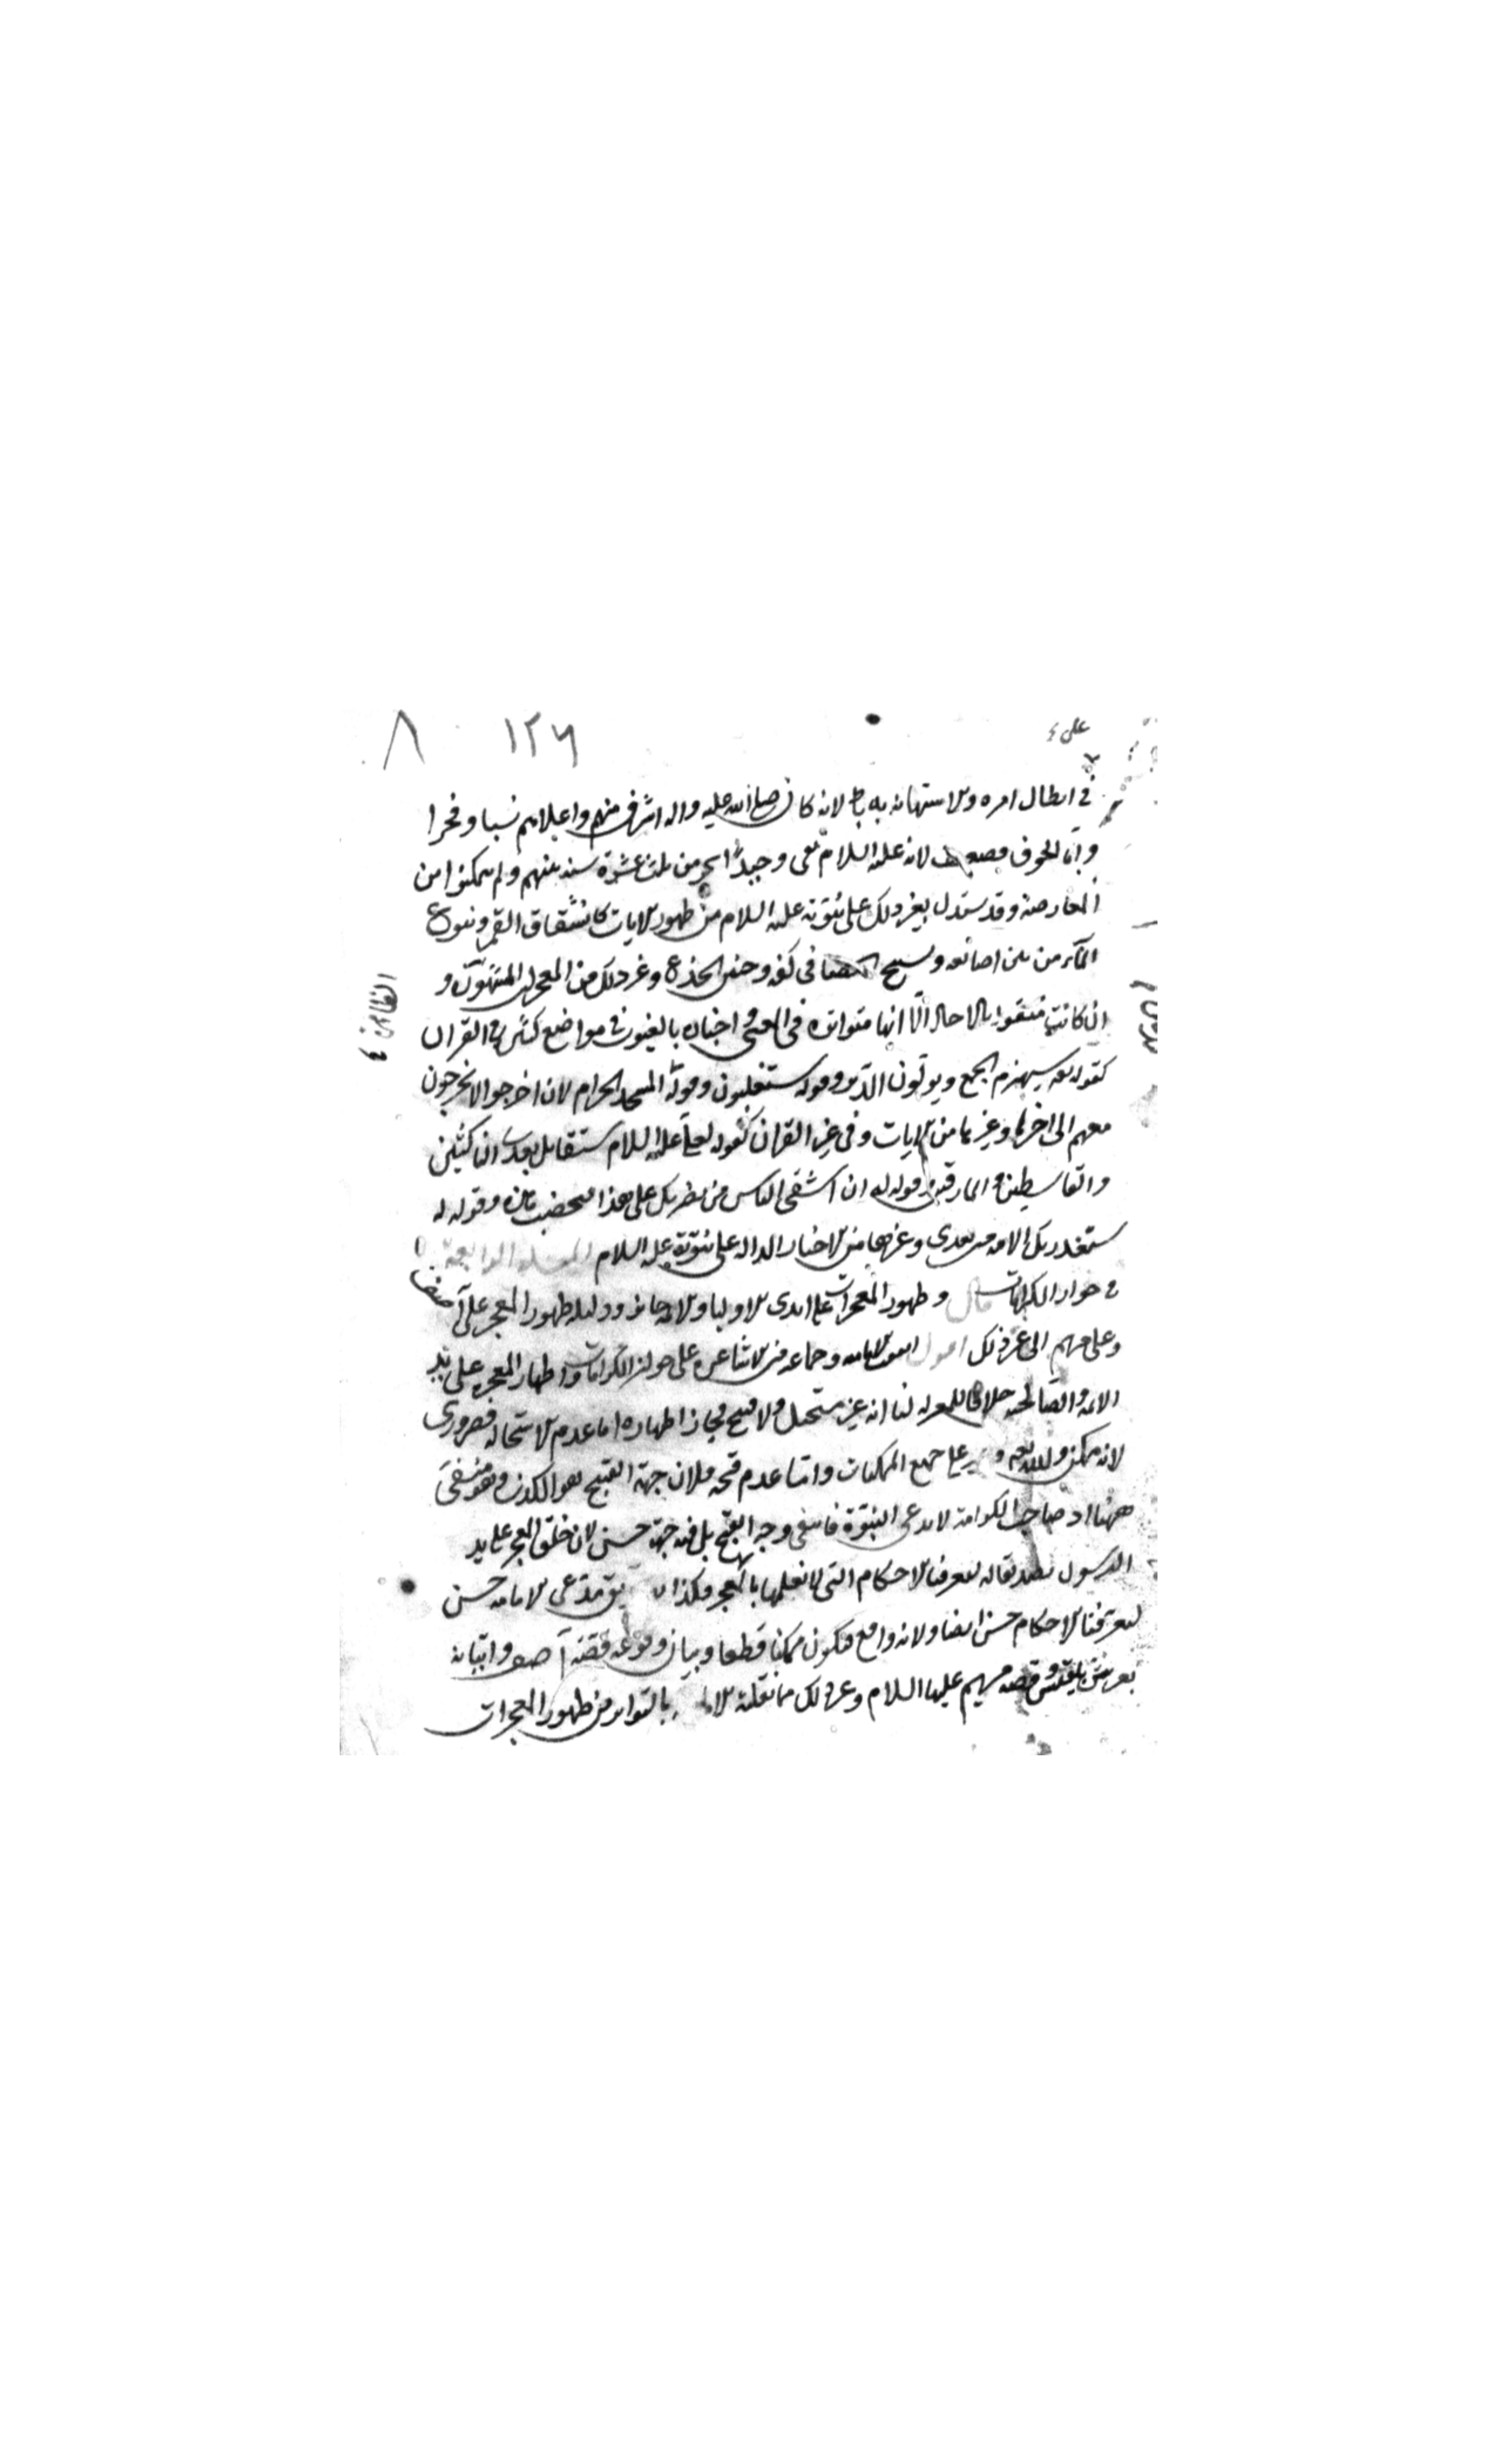 ٨ ١٢٦
على
فى ابطال امره والاستهانه به باطل لانه كان صلى الله عليه واله اشرف منهم واعلاهم نسبا وفخرا
واما الخوف فضعيف لانه عليه السلام بقى وحيدا اكثر من ثلث عشرة سنه بينهم ولم يتمكنوا من
المعارضه وقد يستدل بغير ذلك على نبوته عليه السلام من ظهور الايات كانشقاق القمر ونبوع
المآء من بين اصابعه وتسبيح الحصا فى كفه وحنين الجذع وغير ذلك من المعجزات المشهورة و
ان كانت منقولة بالاحاد الّا انها متواتره فى المعنى واخباره بالغيوب فى مواضع كثيرة فى القران
كقوله تعه سيهزم الجمع ويولّون الدّبر وقوله ستغلبون وقوله المسجد الحرام لان اخرجوا لا يخرجون
معهم الى اخرها وغيرها من الايات وفى غير القران كقوله لعلى عليه السلام ستقاتل بعدى الناكثين
والقاسطين والمارقين وقوله له ان اشقى الناس من يضربك على هذا فيخضب هذه وقوله له
ستغدر بك الامه من بعدى وغيرها من الاخبار الداله على نبوّته عليه السلام المسله الرابعة
فى جواز الكرامات قال وظهور المعجزات على ايدى الاوليا والائمه جائز ودليله ظهور المعجز على آصف
وعلى مريم الى غير ذلك اقول اتفقت الاماميه وجماعه من الاشاعره على جواز الكرامات واظهار المعجزه على يد
الائمه والصالحين خلافا للمعتزله لنا انه غير مستحيل ولا قبيح فجاز اظهاره اما عدم الاستحاله فضرورى
لانه ممكن والله تعه على جميع الممكنات وامّا عدم قبحه فلان جهة القبيح هو الكذب وهو منتفى
ههنا اذ صاحب الكرامة لا يدعى النبوّة فانتفى وجه القبح بل فيه جهة حسن لان خلق المعجز على يد
الرسول تصديقا له ليعرفنا الاحكام التى لا نعلمها بالمعجز وكذا مدّعى الامامه حسن
ليعرّفنا الاحكام حسن ايضا ولانه واقع فيكون ممكنا قطعا وبيان وقوعه قصّة آصف واتيانه
بعرش بلقيس وقصه مريم عليها السلام وغير ذلك مما نقلته بالتواتر من ظهور المعجزات